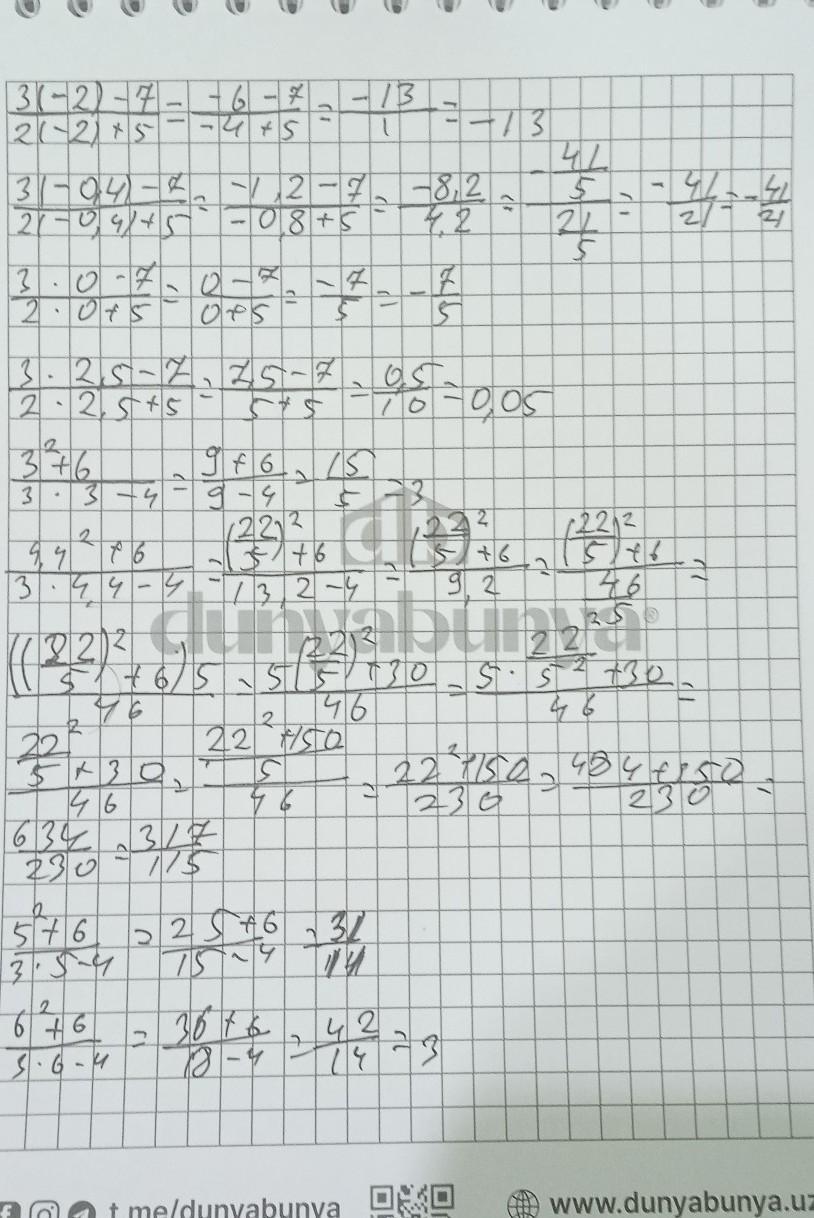 3(-2)-7/2(-2)+5 = -6-7/-4+5 = -13/1 = -13
3(-0,4)-7/2(-0,4)+5 = -1,2-7/-0,8+5 = -8,2/4,2 = -41/5/21/5 = -41/21 = -41/21
3·0-7/2·0+5 = 0-7/0+5 = -7/5 = -7/5
3·2,5-7/2·2,5+5 = 7,5-7/5+5 = 0,5/10 = 0,05
3²+6/3·3-4 = 9+6/9-4 = 15/5 = 3
4,4²+6/3·4,4-4 = (22/5)²+6/13,2-4 = (22/5)²+6/9,2 = (22/5)²+6/46/5 =
((22/5)²+6)5/46 = 5(22/5)²+30/46 = 5·22²/5²+30/46 =
22²/5+30/46 = 22²+150/5/46 = 22²+150/230 = 484+150/230 =
634/230 = 317/115
5²+6/3·5-4 = 25+6/15-4 = 31/11
6²+6/3·6-4 = 36+6/18-4 = 42/14 = 3
dunyabunya®
t.me/dunyabunya www.dunyabunya.uz